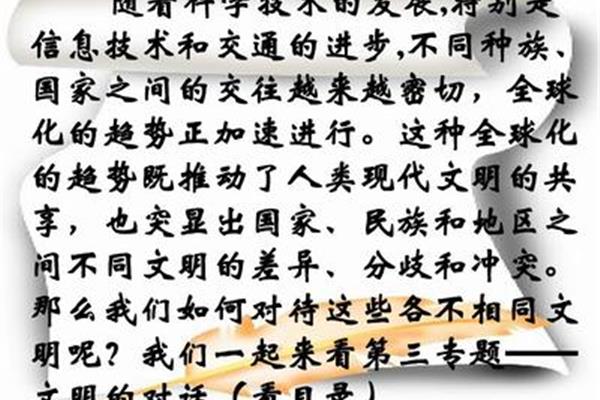 随着科学技术的发展,特别是
信息技术和交通的进步,不同种族、
国家之间的交往越来越密切，全球
化的趋势正加速进行。这种全球化
的趋势既推动了人类现代文明的共
享，也突显出国家、民族和地区之
间不同文明的差异、分歧和冲突。
那么我们如何对待这些各不相同文
明呢？我们一起来看第三专题——
文明的对话（看目录）